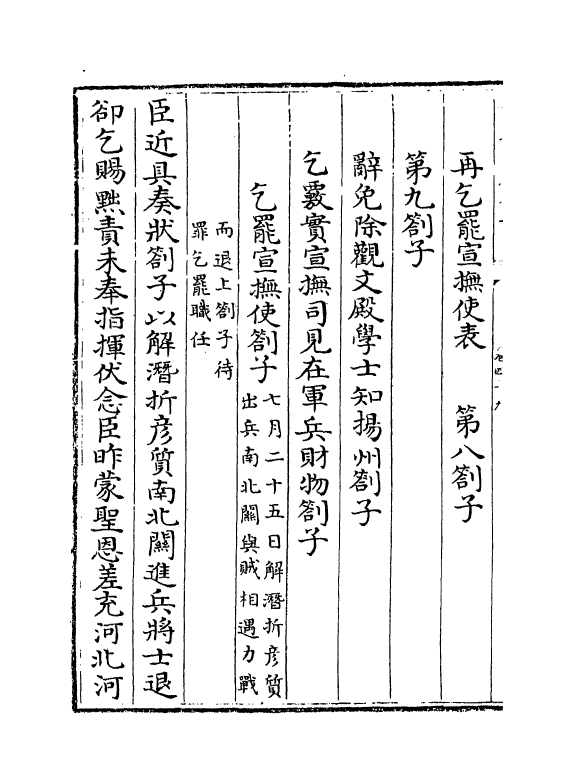 再乞罷宣撫使表　第八劄子
第九劄子
辭免除觀文殿學士知揚州劄子
乞覈實宣撫司見在軍兵財物劄子
乞罷宣撫使劄子七月二十五日解潛折彥質
出兵南北關與賊相遇力戰
而退上劄子待
罪乞罷職任
臣近具奏狀劄子以解潛折彥質南北關進兵將士退
卻乞賜黜責未奉指揮伏念臣昨蒙聖恩差充河北河